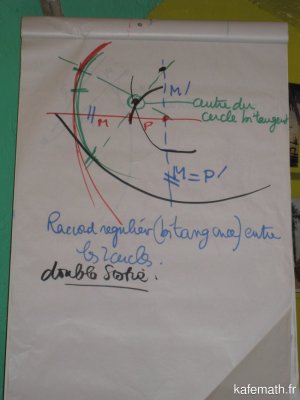 M'
centre du
cercle bitangent
M P
M = P'
Raccord régulier (bitangence) entre
les 2 cercles.
double
kafemath.fr